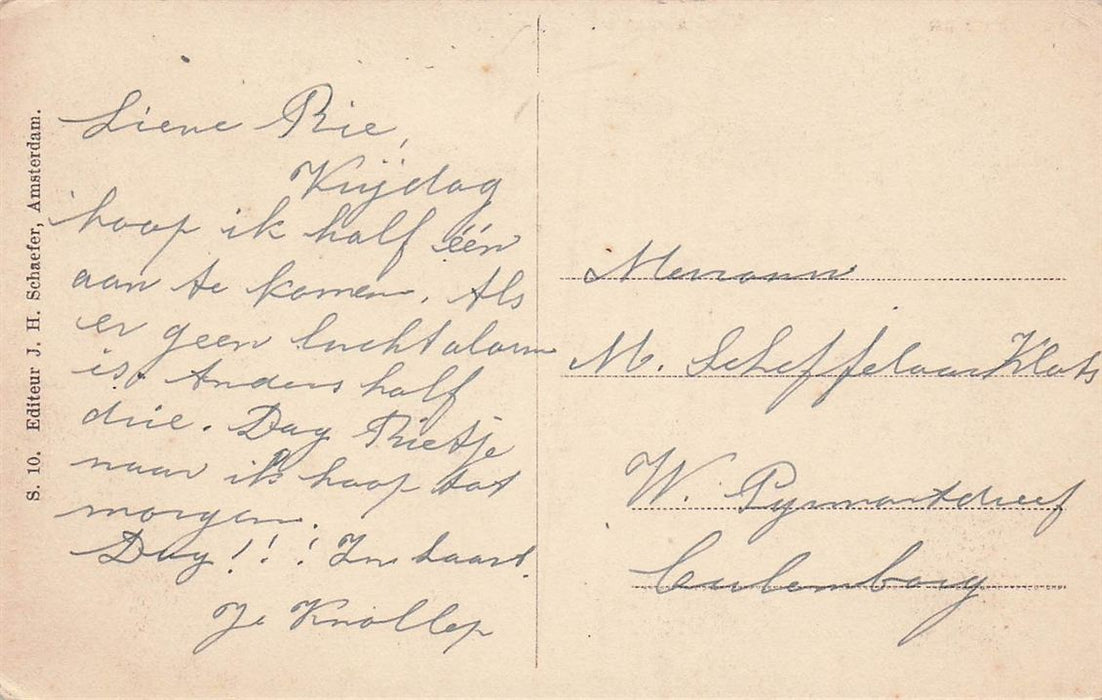 S. 10. Editeur J. H. Schaefer, Amsterdam.
Lieve Rie,
Vrijdag
hoop ik half één
aan te komen. Als
er geen luchtalarm
is. Anders half
drie. Dag Rietje
naar ik hoop tot
morgen.
Dag!!! In haast.
Je Knollep
Mevrouw
M. Scheffelaar Klots
W. Pyrmontdreef
Culemborg